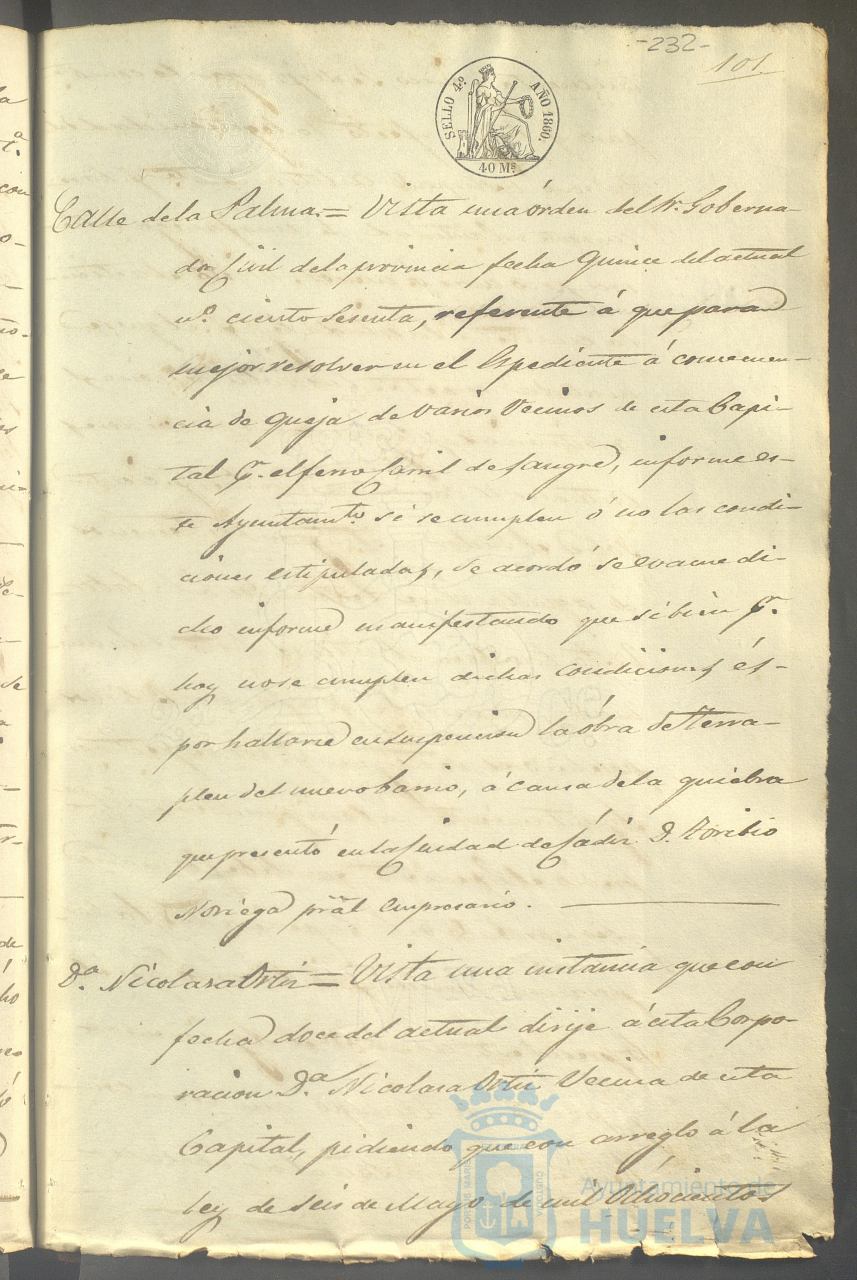 -232-
101
SELLO 4.º AÑO 1860.
40 Ms.
Calle dela Palma = Vista una órden del Sr. Goberna-
dor Civil dela provincia fecha Quince del actual
nº. ciento Sesenta, referente á que para
mejor resolver en el Espediente á consecuen-
cia de queja de varios Vecinos de esta Capi-
tal pr. el ferro Carril de Sangre, informe es-
te Ayuntamto. si se cumplen ó no las condi-
ciones estipuladas, se acordó se evacue di-
cho informe manifestando que si bien pr.
hoy no se cumplen dichas condiciones és-
por hallarse en suspension la óbra de terra-
plen del nuevo barrio, á causa dela quiebra
que presentó en la Ciudad de Cádiz D. Toribio
Noriega pral. empresario.
Da. Nicolasa Ortiz = Vista una instancia que con
fecha doce del actual dirije á esta Corpo-
racion Da. Nicolasa Ortiz Vecina de esta
Capital, pidiendo que con arreglo á la
ley de Seis de Mayo de mil Ochocientos
Ayuntamiento de
HUELVA